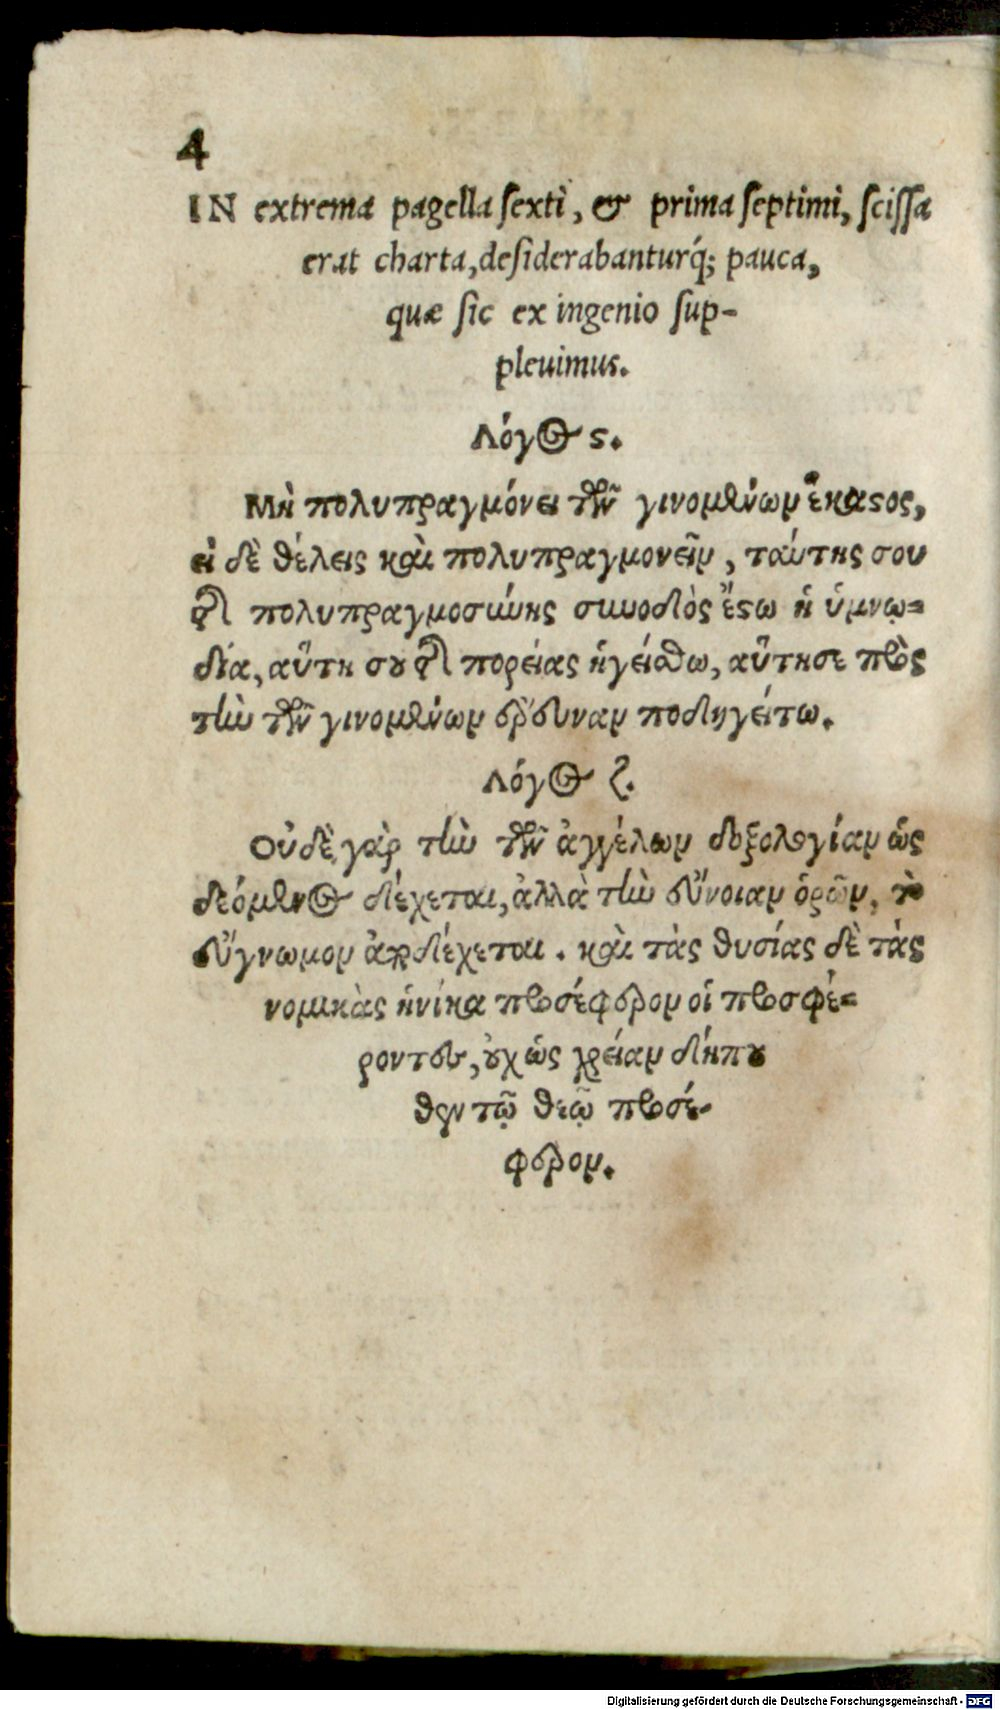 4
IN extrema pagella sexti, & prima septimi, scissa
erat charta, desiderabanturq́; pauca,
quæ sic ex ingenio sup-
pleuimus.
Λόγος ς.
Μὴ πολυπραγμόνει τῶν γινομένων ἕκαστος,
εἰ δὲ θέλεις καὶ πολυπραγμονεῖν, ταύτης σου
τῆς πολυπραγμοσύνης συνοδὸς ἔστω ἡ ὑμνῳ-
δία, αὕτη σου τῆς πορείας ἡγείσθω, αὕτη σε πρὸς
τὴν τῶν γινομένων ἔρευναν ποδηγείτω.
Λόγος ζ.
Οὐδὲ γὰρ τὴν τῶν ἀγγέλων δοξολογίαν ὡς
δεόμενος δέχεται, ἀλλὰ τὴν εὔνοιαν ὁρῶν, τὸ
εὔγνωμον ἀποδέχεται. καὶ τὰς θυσίας δὲ τὰς
νομικὰς ἡνίκα προσέφερον οἱ προσφέ-
ροντες, οὐχ ὡς χρείαν δήπου
θεν τῷ θεῷ προσέ-
φερον.
Digitalisierung gefördert durch die Deutsche Forschungsgemeinschaft - DFG